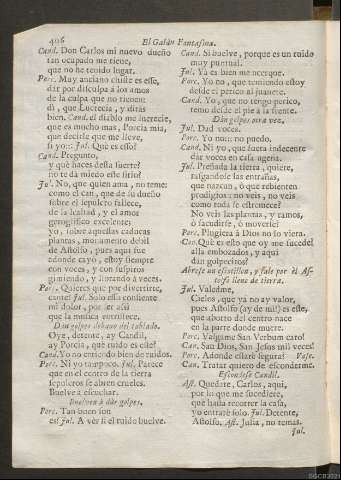 406
El Galán Fantasma.
Cand. Don Carlos mi nuevo dueño
tan ocupado me tiene,
que no he tenido lugar.
Porc. Muy anciano chiste es esse,
dar por disculpa à los amos
de la culpa que no tienen:
di, que Lucrecia, y dirás
bien. Cand. el diablo me lucrecie,
que es mucho mas, Porcia mia,
que decirle que me lleve,
si yo:- Jul. Què es esso?
Cand. Pregunto,
y què haces desta suerte?
no te dà miedo esse sitio?
Jul. No, que quien ama, no teme:
como el can, que de su dueño
sobre el sepulcro fallece,
de la lealtad, y el amor
geroglifico excelente:
yo, sobre aquestas caducas
plantas, monumento debil
de Astolfo, pues aqui fue
adonde cayò, estoy siempre
con voces, y con suspiros
gimiendo, y llorando à veces.
Porc. Quieres que por divertirte,
cante? Jul. Solo esso consiente
mi dolor, por ser assi
que la musica entristece.
Dàn golpes debaxo del tablado.
Oye, detente, ay Candil,
ay Porcia, què ruido es este?
Cand. Yo no entiendo bien de ruidos.
Porc. Ni yo tampoco. Jul. Parece
que en el centro de la tierra
sepulcros se abren crueles.
Buelve à escuchar.
Buelven à dàr golpes.
Porc. Tan buen son
es? Jul. A vèr si el ruido buelve.
Cand. Si buelve, porque es un ruido
muy puntual.
Jul. Yà es bien me acerque.
Porc. Yo no, que temiendo estoy
desde el perico al juanete.
Cand. Yo, que no tengo perico,
temo desde el pie à la frente.
Dàn golpes otra vez.
Jul. Dad voces.
Porc. Yo no:- no puedo.
Cand. Ni yo, que fuera indecente
dar voces en casa agena.
Jul. Preñada la tierra, quiere,
rasgandose las entrañas,
que nazcan, ò que rebienten
prodigios: no veis, no veis
como toda se estremece?
No veis las plantas, y ramos,
ò sacudirse, ò moverse?
Porc. Pluguiera à Dios no lo viera.
Can. Què es esto que oy me sucede!
allà embozados, y aqui
dàn golpecitos?
Abrese un escotillon, y sale por èl Astolfo
lleno de tierra.
Jul. Valedme,
Cielos, que yà no ay valor,
pues Astolfo (ay de mi!) es este,
que aborto del centro nace
en la parte donde muere.
Porc. Valgame San Verbum caro!
Can. San Dios, San Jesus mil veces!
Porc. Adonde estarè segura? Vase.
Can. Tratar quiero de esconderme.
Escondese Candil.
Ast. Quedate, Carlos, aqui,
por lo que me sucediere,
que hasta recorrer la casa,
yo entrarè solo. Jul. Detente,
Astolfo. Ast. Julia, no temas.
Jul.